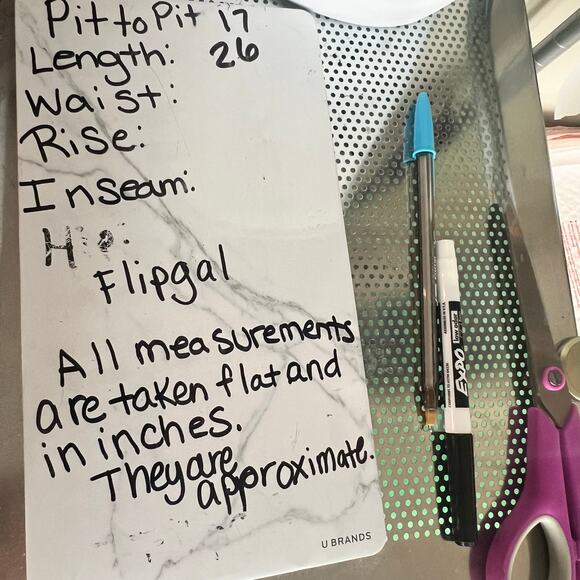 Pit to Pit 17
Length: 26
Waist:
Rise:
Inseam:
Hip:
Flipgal
All measurements
are taken flat and
in inches.
They are
approximate.
U BRANDS
EXPO